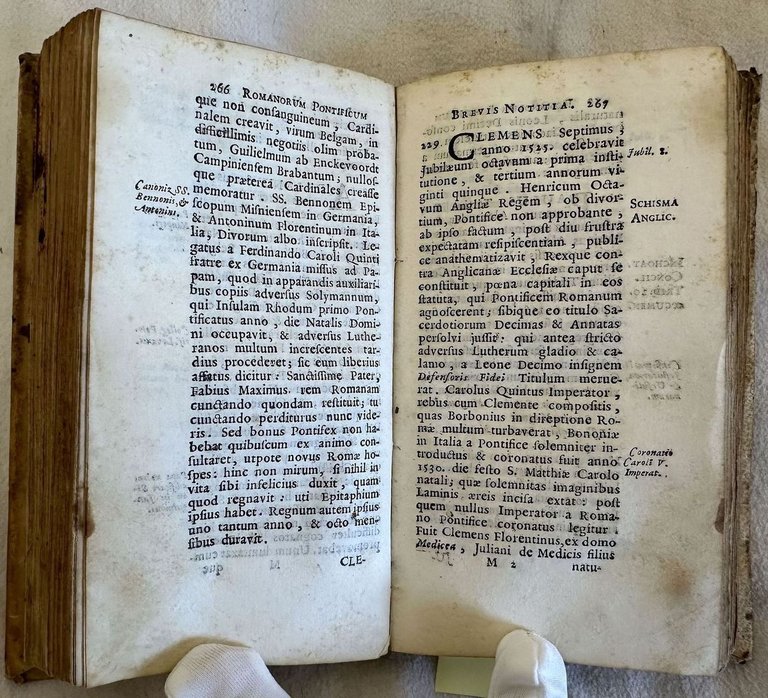 266 ROMANORUM PONTIFICUM
que non consanguineum, Cardi-
nalem creavit, virum Belgam, in
difficillimis negotiis olim proba-
tum, Guilielmum ab Enckevoordt
Campiniensem Brabantum; nullos-
que præterea Cardinales creasse
memoratur. SS. Bennonem Epi-
scopum Misniensem in Germania,
& Antoninum Florentinum in Ita-
lia, Divorum albo inscripsit. Le-
gatus a Ferdinando Caroli Quinti
fratre ex Germania missus ad Pa-
pam, quod in apparandis auxiliari-
bus copiis adversus Solymannum,
qui Insulam Rhodum primo Pon-
tificatus anno, die Natalis Domi-
ni occupavit, & adversus Luthe-
ranos multum increscentes tar-
dius procederet; sic eum liberius
affatus dicitur: Sanctissime Pater,
Fabius Maximus rem Romanam
cunctando quondam restituit; tu
cunctando perditurus nunc vide-
ris. Sed bonus Pontifex non ha-
bebat quibuscum ex animo con-
sultaret, utpote novus Romæ ho-
spes: hinc non mirum, si nihil in
vita sibi infelicius duxit, quam
quod regnavit: uti Epitaphium
ipsius habet. Regnum autem ipsius
uno tantum anno, & octo men-
sibus duravit.
CLE-
Canoniz. SS.
Bennonis, &
Antonini.
BREVIS NOTITIA. 267
229. CLEMENS Septimus
anno 1525. celebravit
Jubilæum octavum a prima insti-
tutione, & tertium annorum vi-
ginti quinque. Henricum Octa-
vum Angliæ Regem, ob divor-
tium, Pontifice non approbante,
ab ipso factum, post diu frustra
expectatam resipiscentiam, publi-
ce anathematizavit, Rexque con-
tra Anglicanæ Ecclesiæ caput se
constituit, pœna capitali in eos
statuta, qui Pontificem Romanum
agnoscerent; sibique eo titulo Sa-
cerdotiorum Decimas & Annatas
persolvi jussit: qui antea stricto
adversus Lutherum gladio & ca-
lamo, a Leone Decimo insignem
Defensoris Fidei Titulum merue-
rat. Carolus Quintus Imperator,
rebus cum Clemente compositis,
quas Borbonius in direptione Ro-
mæ multum turbaverat, Bononiæ
in Italia a Pontifice solemniter in-
troductus & coronatus fuit anno
1530. die festo S. Matthiæ Carolo
natali; quæ solemnitas imaginibus
Laminis æreis incisa extat: post
quem nullus Imperator a Roma-
no Pontifice coronatus legitur.
Fuit Clemens Florentinus, ex domo
Medicea, Juliani de Medicis filius
M 2 natu-
Jubil. 8.
SCHISMA
ANGLIC.
Coronatio
Caroli V.
Imperat.